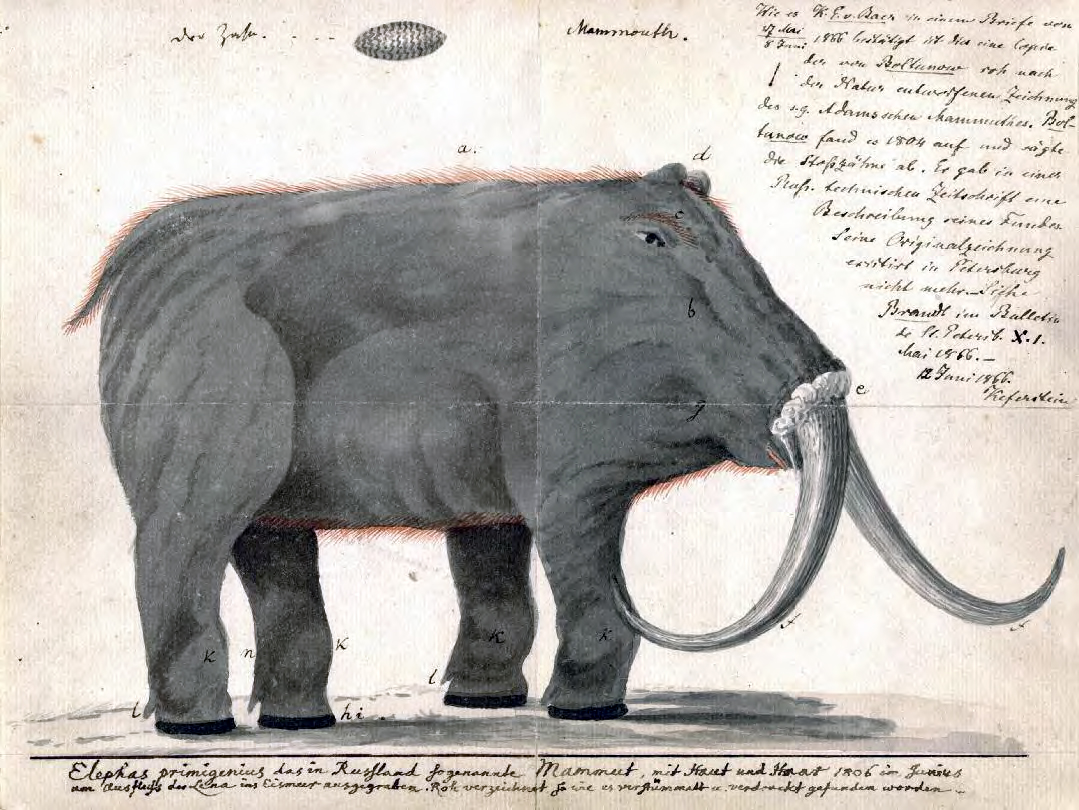 der Zahn. - - -
Mammouth.
Wie es K. E. v. Baer in einem Briefe von
27 Mai
8 Juni 1866 bestätigt ist dies eine Copie
der von Boltunow roh nach
der Natur entworfenen Zeichnung
des s.g. Adamsschen Mammuthes. Bol-
tunow fand es 1804 auf und sägte
die Stoßzähne ab. Er gab in einer
Russ. technischen Zeitschrift eine
Beschreibung seines Fundes.
Seine Originalzeichnung
existirt in Petersburg
nicht mehr. Siehe
Brandt im Bulletin
de St. Petersb. X. 1.
Mai 1866.—
12 Juni 1866.
Keferstein
a.
d
c
b
g
e
f
f
k
n
k
k
k
l
l
h i .
Elephas primigenius das in Russland sogenannte Mammut, mit Haut und Haar 1806 im Junius
am Ausfluss des Lena ins Eismeer ausgegraben. Roh verzeichnet so wie es verstümmelt u. verdrockt gefunden worden